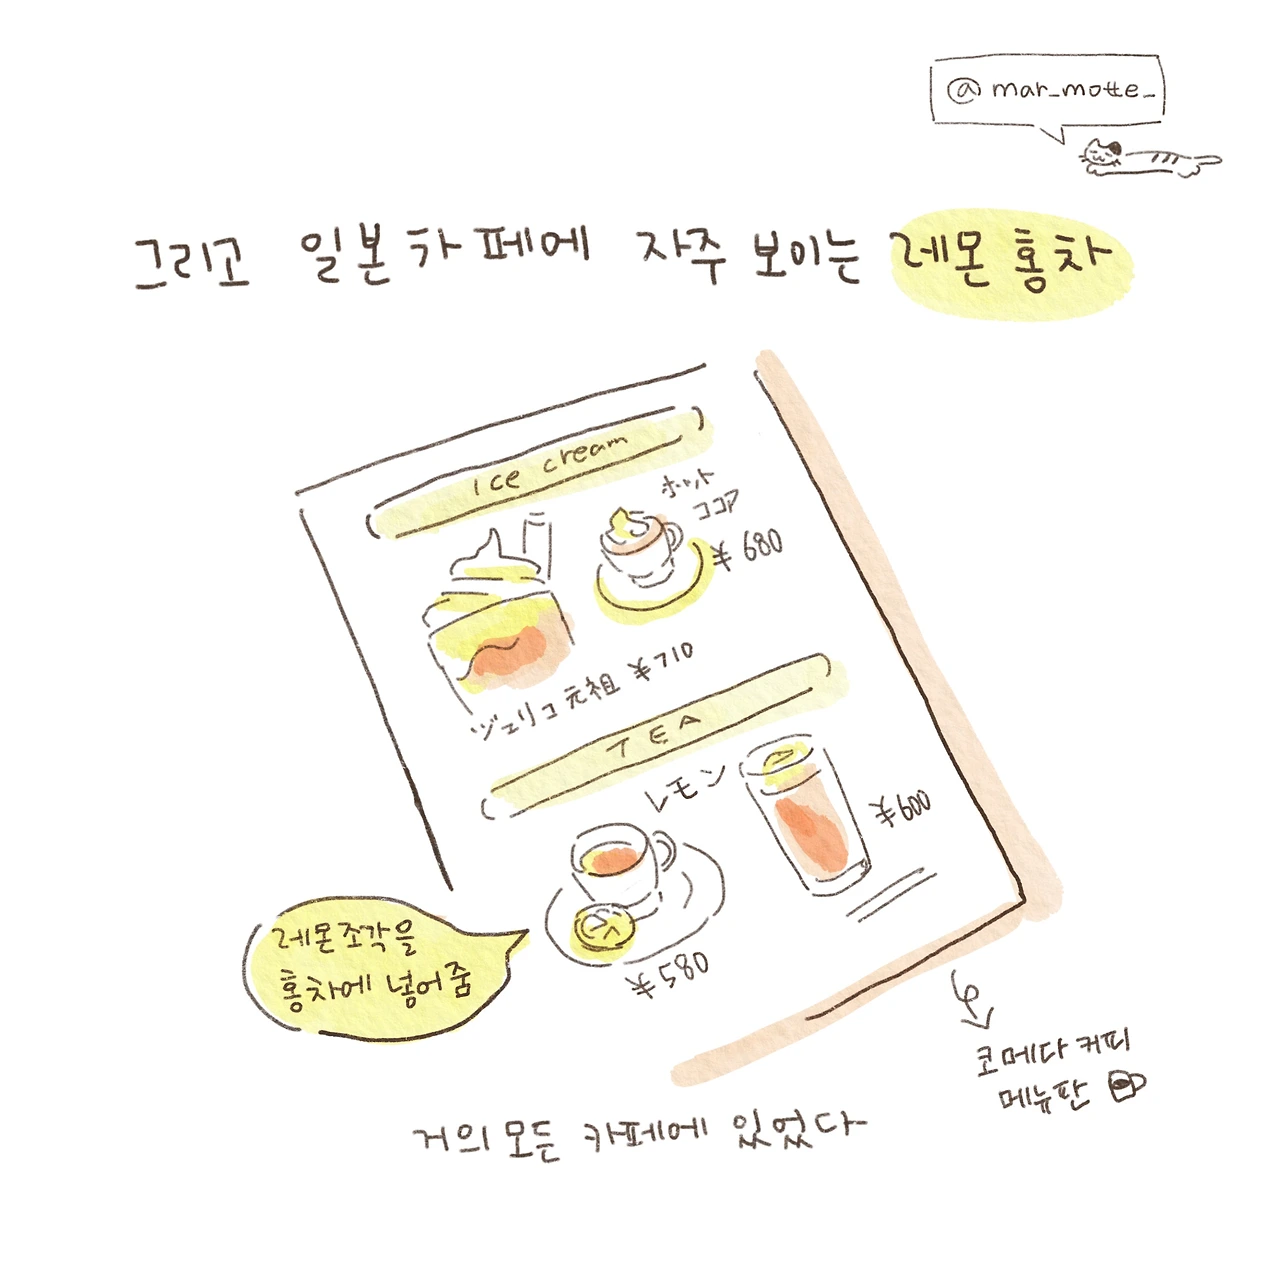 @mar_motte_
그리고 일본카페에 자주 보이는 레몬홍차
Ice cream
ホット
ココア
¥680
ジェリコ 元祖 ¥710
TEA
レモン
¥600
레몬조각을
홍차에 넣어줌
¥580
코메다 커피
메뉴판
거의 모든 카페에 있었다